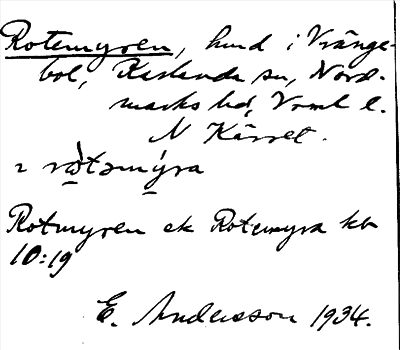 Rotemyren, hund i Vränge-
bol, Karlanda sn, Nord-
marks hd, Vrml l.
N Kärret.
2 rωtəmýra
Rotmyren ek Rotemyra kb
10:19
E. Andersson 1934.